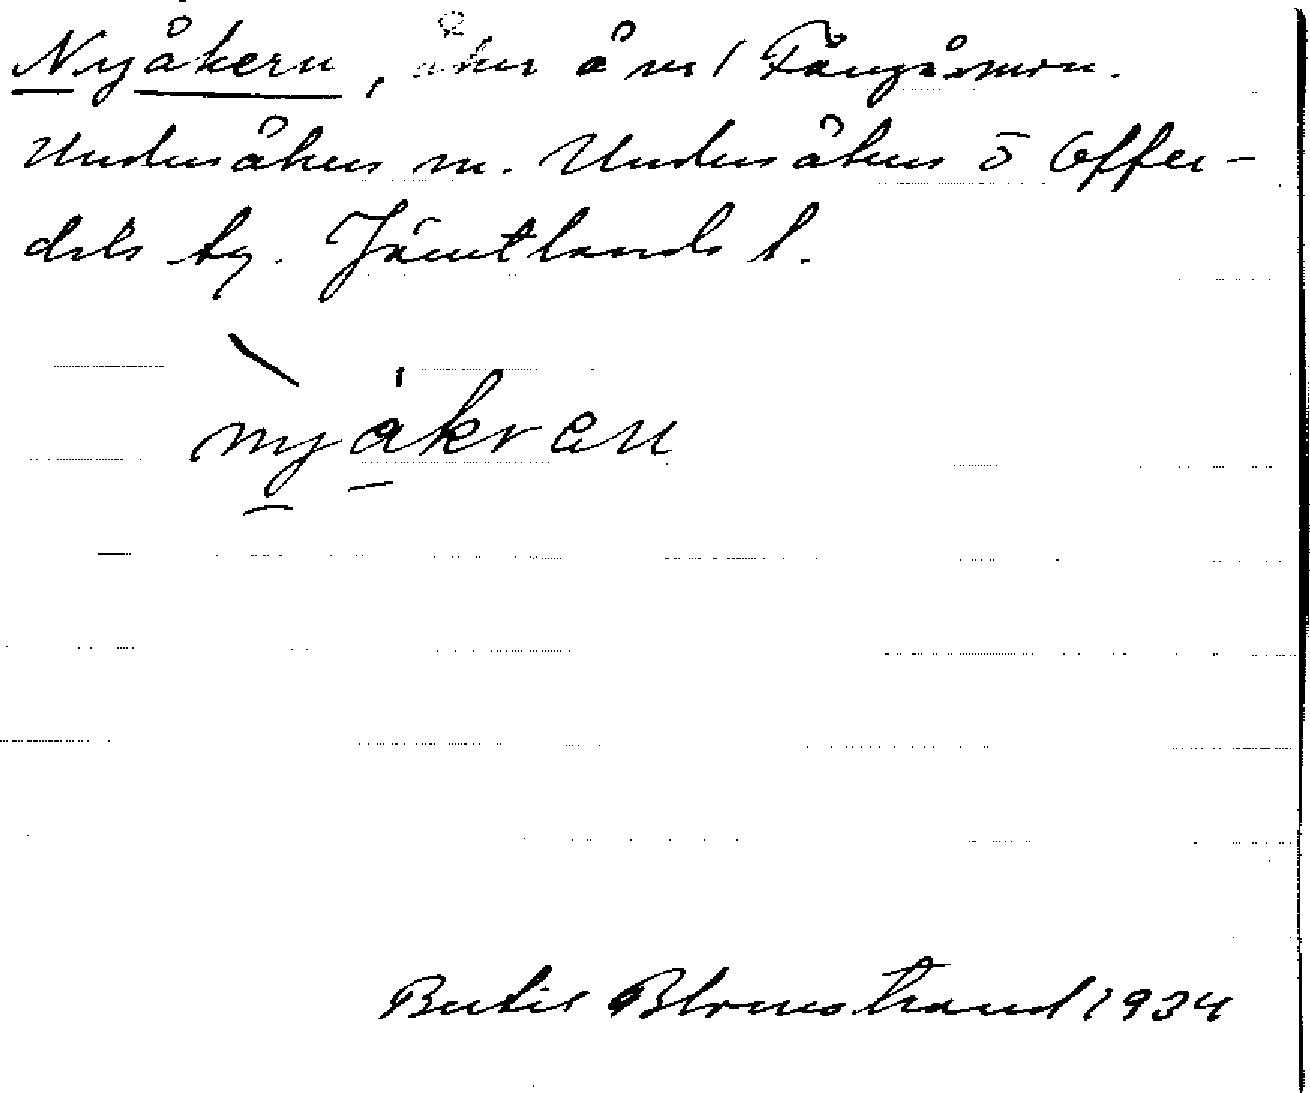 Nyåkern, åker å nr 1 Fångåmon.
Undersåkers sn. Undersåkers o Offer-
dals tg. Jämtlands l.
nyåkran
Bertil Blomstrand 1934